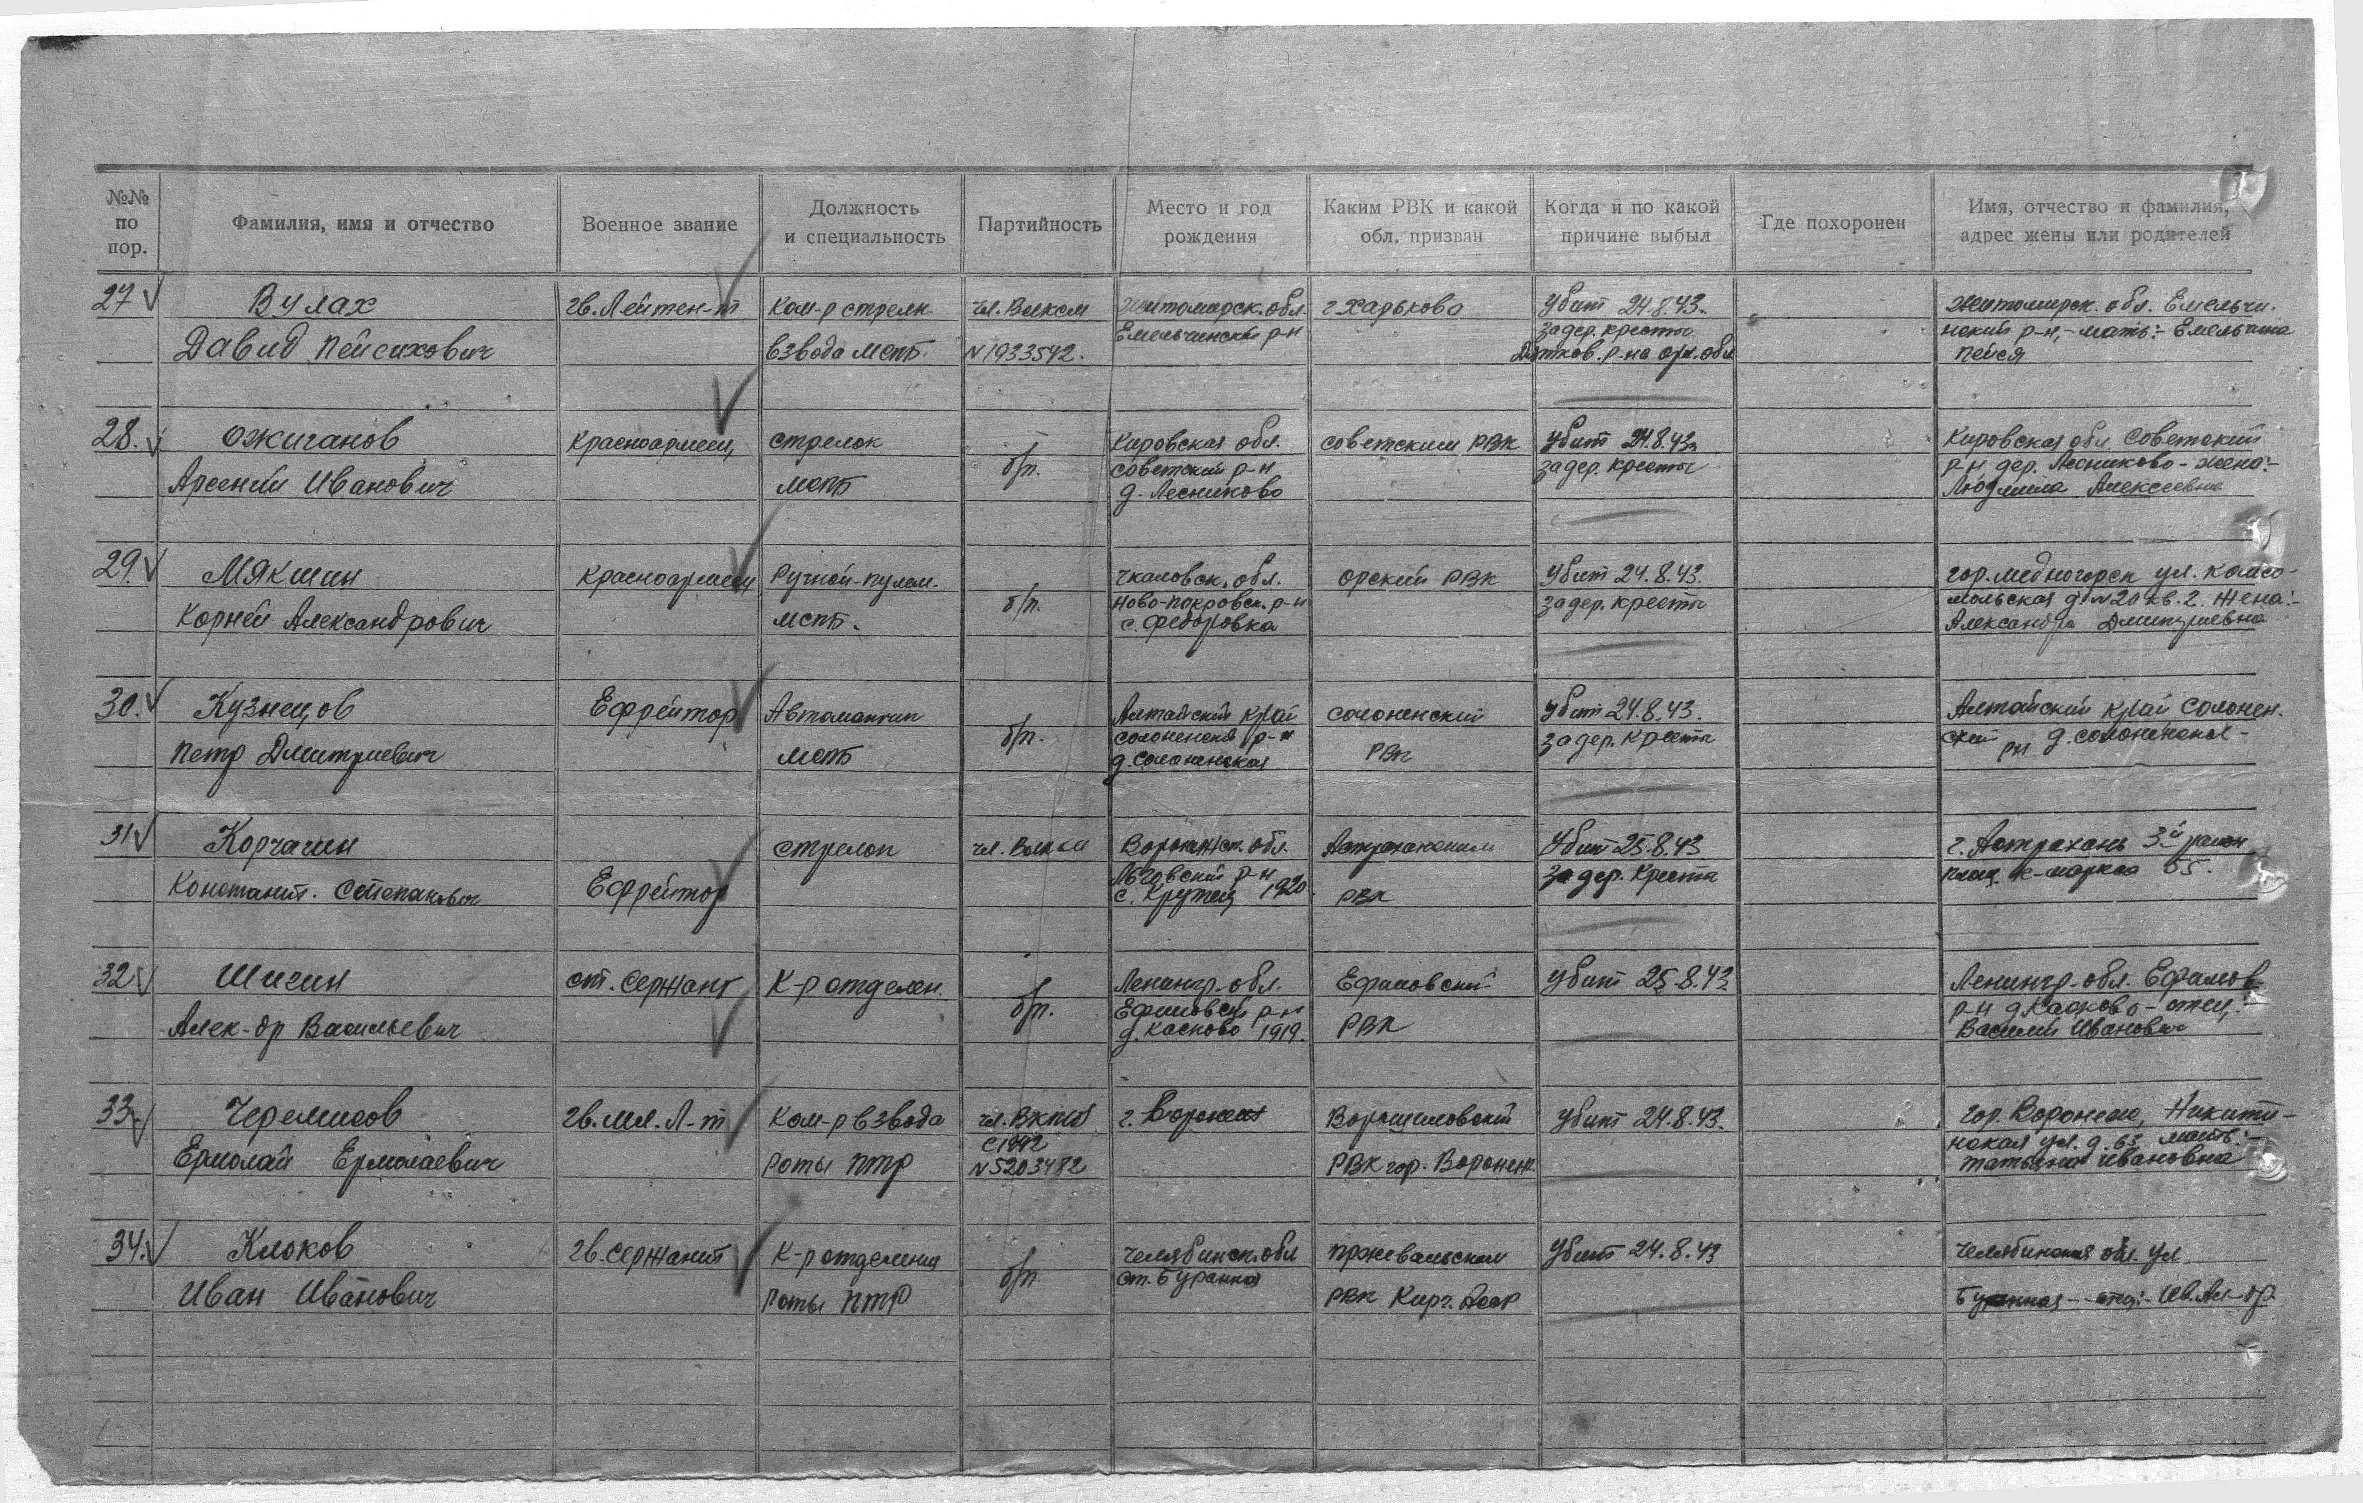 №№ по пор.
Фамилия, имя и отчество
Военное звание
Должность и специальность
Партийность
Место и год рождения
Каким РВК и какой обл. призван
Когда и по какой причине выбыл
Где похоронен
Имя, отчество и фамилия, адрес жены или родителей
27
Вулах
Давид Пейсихович
гв. Лейтен-т
Ком-р стрелк
взвода мспб.
чл. Влксм
N 1933542.
Житомирск. обл.
Емельчински р-н
г. Харьково
Убит 24.8.43.
за дер. кресты
Дятков. р-на орл. обл
Житомирск. обл. Емельчи-
нский р-н, - мать:- Емельчина
Пейся
28.
Ожиганов
Арсений Иванович
Красноармеец
стрелок
мспб
б/п.
Кировская обл.
советский р-н
д. Лесниково
советским РВК
Убит 24.8.43
за дер. кресты
Кировская обл советский
р-н дер. Лесниково - жена:-
Людмила Алексеевна
29.
Мякшин
Корней Александрович
Красноармеец
Ручной-пулем.
мспб.
б/п.
Чкаловск. обл.
Ново-покровск. р-н
с. Федоровка
орский РВК
Убит 24.8.43.
за дер. кресты
гор. Медногорск ул. комсо-
мольская д. N 20 кв. 2. Жена:-
Александра Дмитриевна
30.
Кузнецов
Петр Дмитриевич
Ефрейтор
Автоматчик
мспб
б/п.
Алтайский край
солоненский р-н
д. солоненская
солоненский
РВК
Убит 24.8.43.
за дер. Кресты
Алтайский край Солонен.
ский рн д. солоненская -
31
Корчагин
Константи. Степанович
Ефрейтор
стрелок
чл. Влкса
Воронежск. обл.
с. Крутец 1920
Астраханским
РВК
Убит 25.8.43
за дер. Кресты
г. Астрахань 3й район
к-маркса 55.
32
Шигин
Алек-др Васильевич
ст. сержант
К-р отделен.
б/п.
Ленингр. обл.
Ефимовский р-н
д. Касково 1919.
Ефимовский
РВК
Убит 25.8.43
Ленингр. обл. Ефимов.
р-н д Касково - отец:-
Василий Иванович
33
Черемисов
Ермолай Ермолаевич
гв. мл. Л-т
Ком-р взвода
роты птр
чл. ВКПб
с 1942
N 5203482
г. Воронеж
Ворошиловский
РВК гор. Воронеж
Убит 24.8.43.
гор. Воронеж, Никити-
нская ул. д. 63 мать:-
Татьяна Ивановна
34.
Клоков
Иван Иванович
гв. сержант
К-р отделения
роты птр
б/п
Челябинск. обл
ст. Буранная
пржевальским
РВК Кирг. Асср
Убит 24.8.43
Челябинская обл. ул
Буранная - отец:- Ив. Ал-др